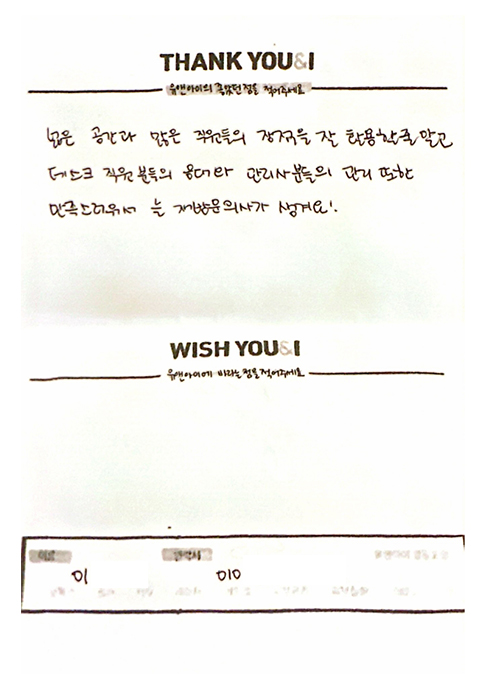 THANK YOU&I
유앤아이의 좋았던 점을 적어주세요
넓은 공간과 많은 직원들의 장점을 잘 활용할줄 알고
데스크 직원분들의 응대와 관리사분들의 관리 또한
만족스러워서 늘 재방문의사가 생겨요!
WISH YOU&I
유앤아이에 바라는 점을 적어주세요
이름
연락처
이
010